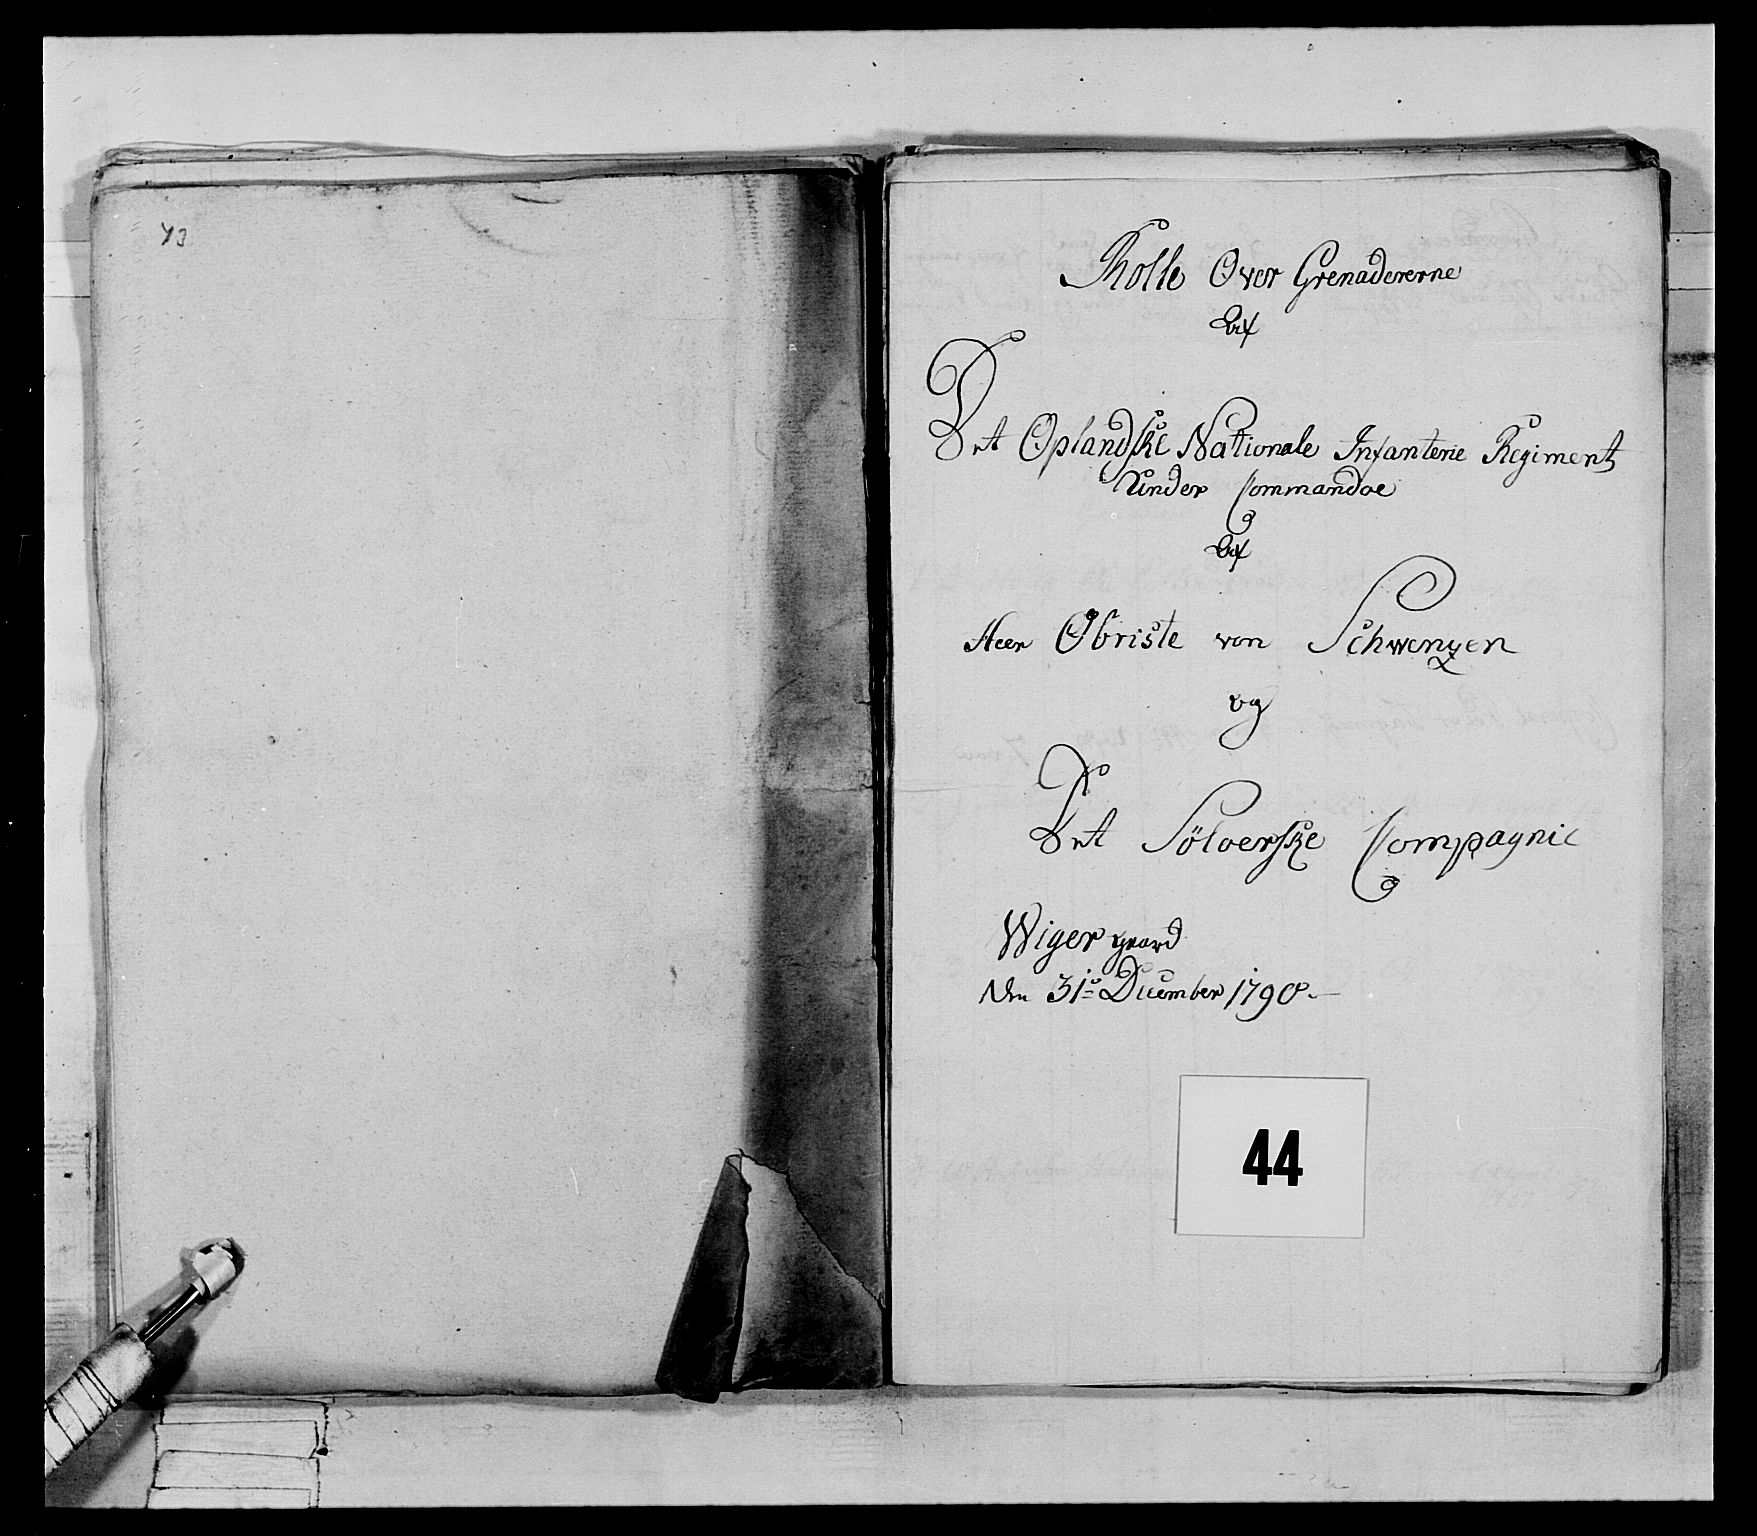 43
Rolle Over Grenadererne
Af
Det Oplandske Nattionale Infanterie Regiment
Under Commandoe
Af
Herr Obriste von Schwenzen
og
Det Söloerske Compagnie
Wiger gaard
den 31te December 1790.
44